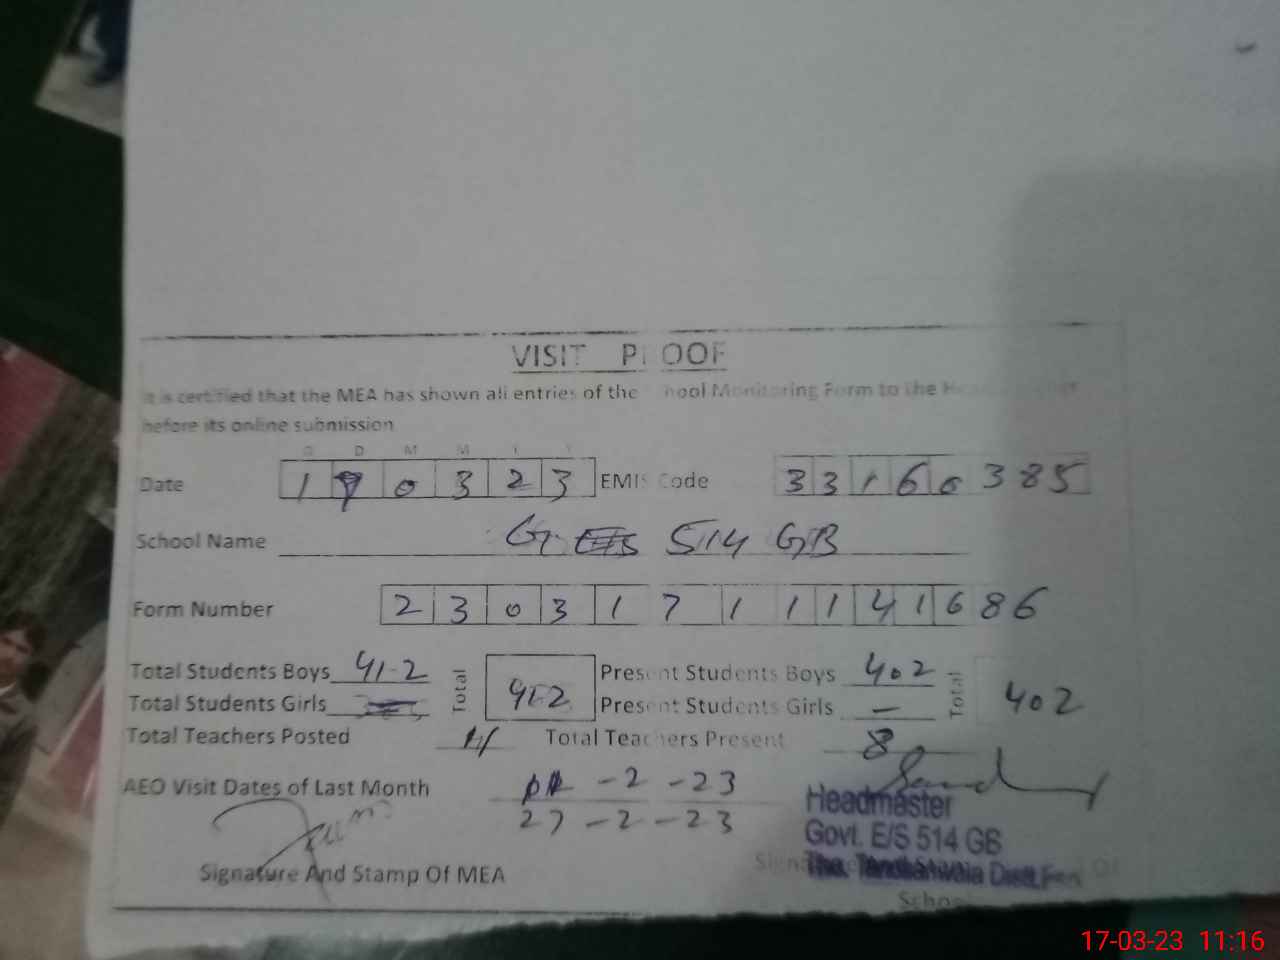 VISIT PROOF
It is certified that the MEA has shown all entries of the School Monitoring Form to the
before its online submission
D D M M Y Y
Date 1 7 0 3 2 3 EMIS Code 3 3 1 6 0 3 8 5
School Name G 514 GB
Form Number 2 3 0 3 1 7 1 1 1 4 1 6 8 6
Total Students Boys 412 Total 412 Present Students Boys 402 Total 402
Total Students Girls Present Students Girls —
Total Teachers Posted 11 Total Teachers Present 8
AEO Visit Dates of Last Month -2-23
27-2-23
Headmaster
Govt. E/S 514 GB
Signature And Stamp Of MEA
Teh. Tandlianwala Distt.
17-03-23 11:16